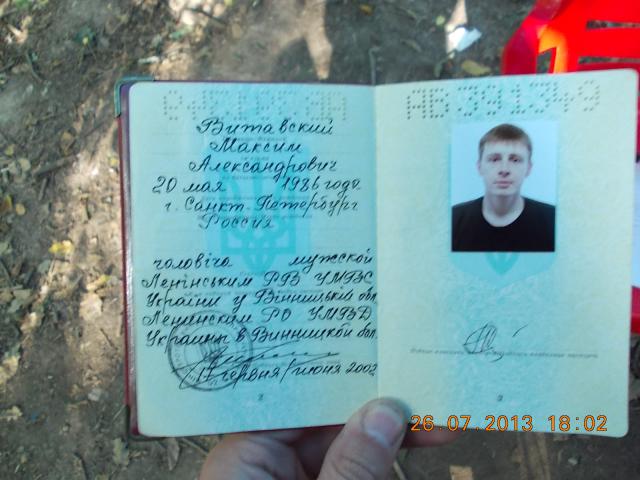 Витавский
Максим
Александрович
20 мая 1986 года
г. Санкт-Петербург
Россия
чоловіча мужской
Ленінським РВ УМВС
України у Вінницькій обл.
Ленинским РО УМВД
Украины в Винницкой обл.
17 червня/июня 2002
2
3
26.07.2013 18:02